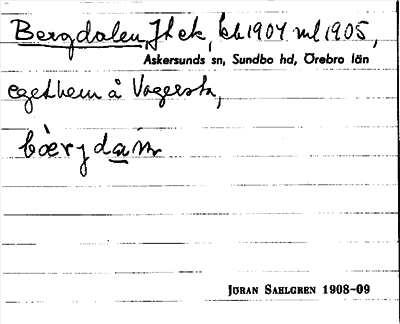 Bergdalen, Jh ek, kb 1904 ml 1905,
Askersunds sn, Sundbo hd, Örebro län
egethem å Vagersta,
bæ̀rjdan
JÖRAN SAHLGREN 1908-09